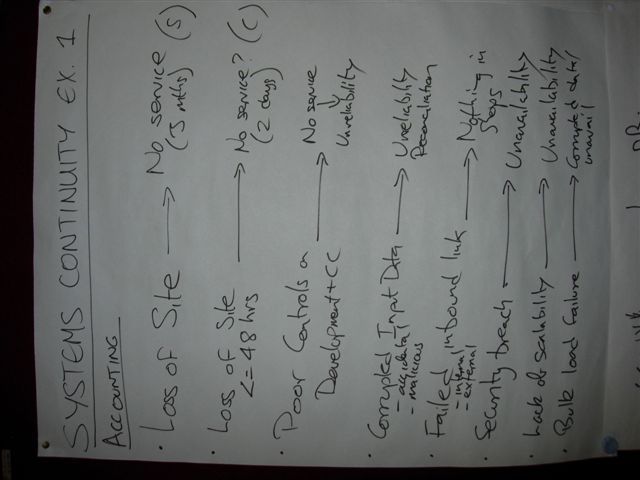 SYSTEMS CONTINUITY EX. 1
ACCOUNTING
• Loss of Site → No service (S)
(3 mths)
• Loss of Site → No service? (C)
<= 48 hrs (2 days)
• Poor Controls on → No service
Development + CC Unreliability
• Corrupted Input Data → Unreliability
- accidental Reconciliation
- malicious
• Failed inbound link → Nothing in
- internal shops
- external
• Security breach → Unavailability
• Lack of scalability → Unavailability
• Bulk load failure → Corrupted data/
unavail